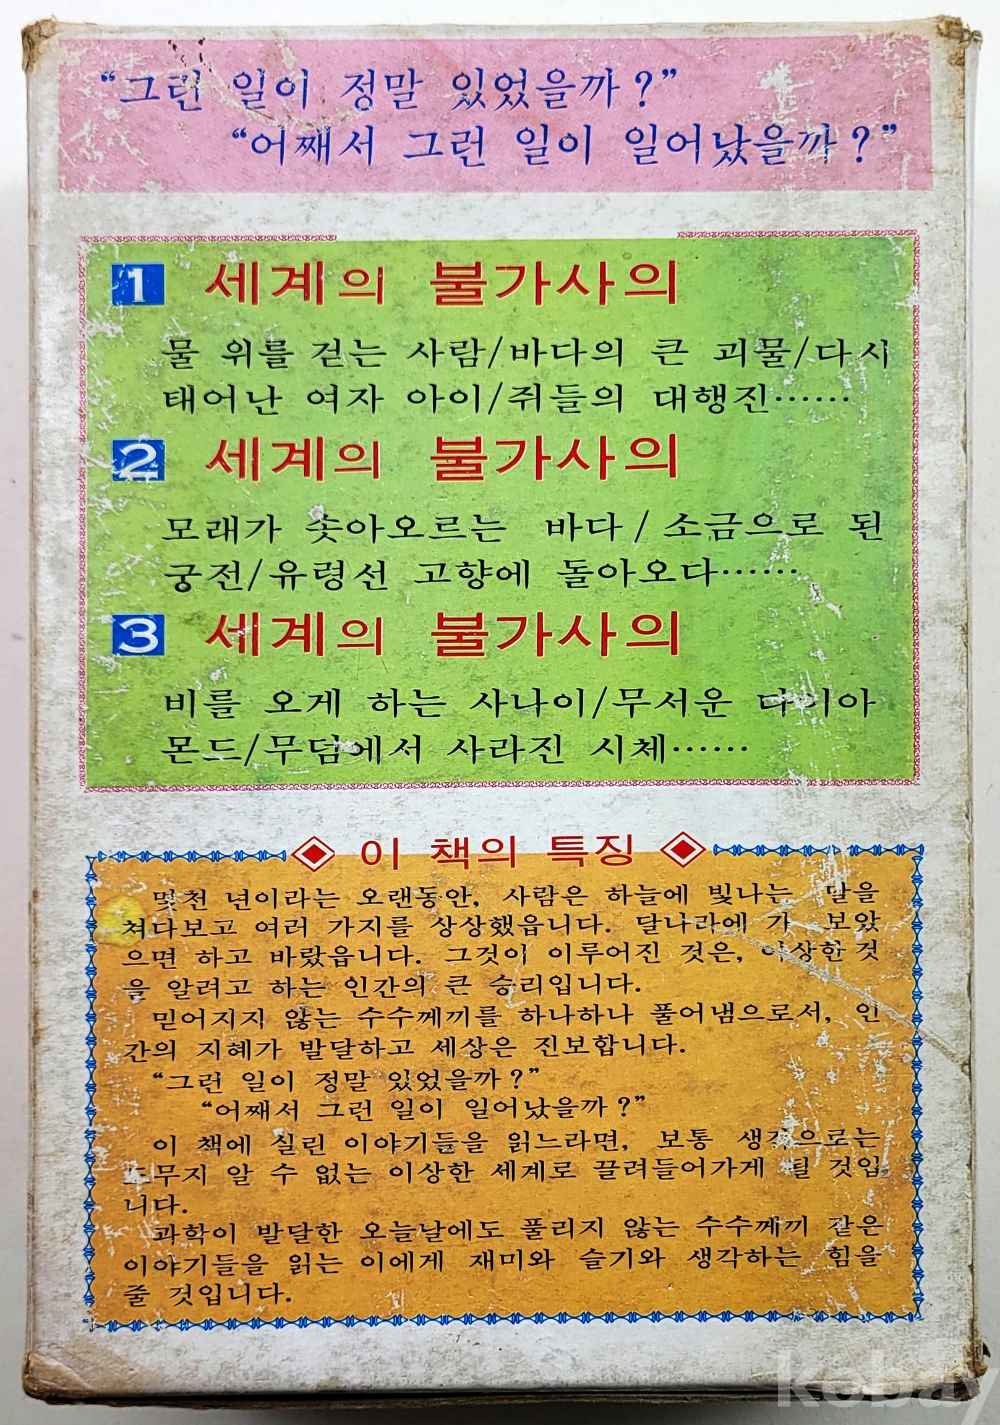 “그런 일이 정말 있었을까?”
“어째서 그런 일이 일어났을까?”
1 세계의 불가사의
물 위를 걷는 사람/바다의 큰 괴물/다시
태어난 여자 아이/쥐들의 대행진……
2 세계의 불가사의
모래가 솟아오르는 바다/소금으로 된
궁전/유령선 고향에 돌아오다……
3 세계의 불가사의
비를 오게 하는 사나이/무서운 다이아
몬드/무덤에서 사라진 시체……
이 책의 특징
몇천 년이라는 오랜동안, 사람은 하늘에 빛나는 달을
쳐다보고 여러 가지를 상상했읍니다. 달나라에 가 보았
으면 하고 바랐읍니다. 그것이 이루어진 것은, 이상한 것
을 알려고 하는 인간의 큰 승리입니다.
믿어지지 않는 수수께끼를 하나하나 풀어냄으로서, 인
간의 지혜가 발달하고 세상은 진보합니다.
“그런 일이 정말 있었을까?”
“어째서 그런 일이 일어났을까?”
이 책에 실린 이야기들을 읽느라면, 보통 생각으로는
도무지 알 수 없는 이상한 세계로 끌려들어가게 될 것입
니다.
과학이 발달한 오늘날에도 풀리지 않는 수수께끼 같은
이야기들을 읽는 이에게 재미와 슬기와 생각하는 힘을
줄 것입니다.
kobay